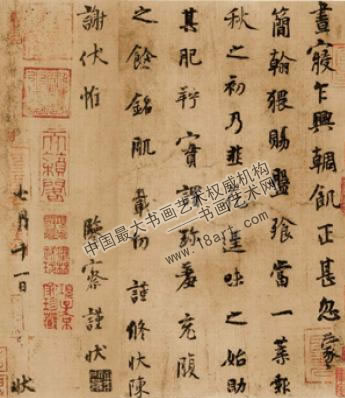 晝寢乍興輖飢正甚忽蒙
簡翰猥賜盤飧當一葉報
秋之初乃韭逞味之始助
其肥羜實謂珍羞充腹
之餘銘肌載切謹修狀陳
謝伏惟 鑒察謹狀
七月十一日 狀
天籟閣
項子京家珍藏
中国最大书画艺术权威机构
——书画艺术网
www.18art.com